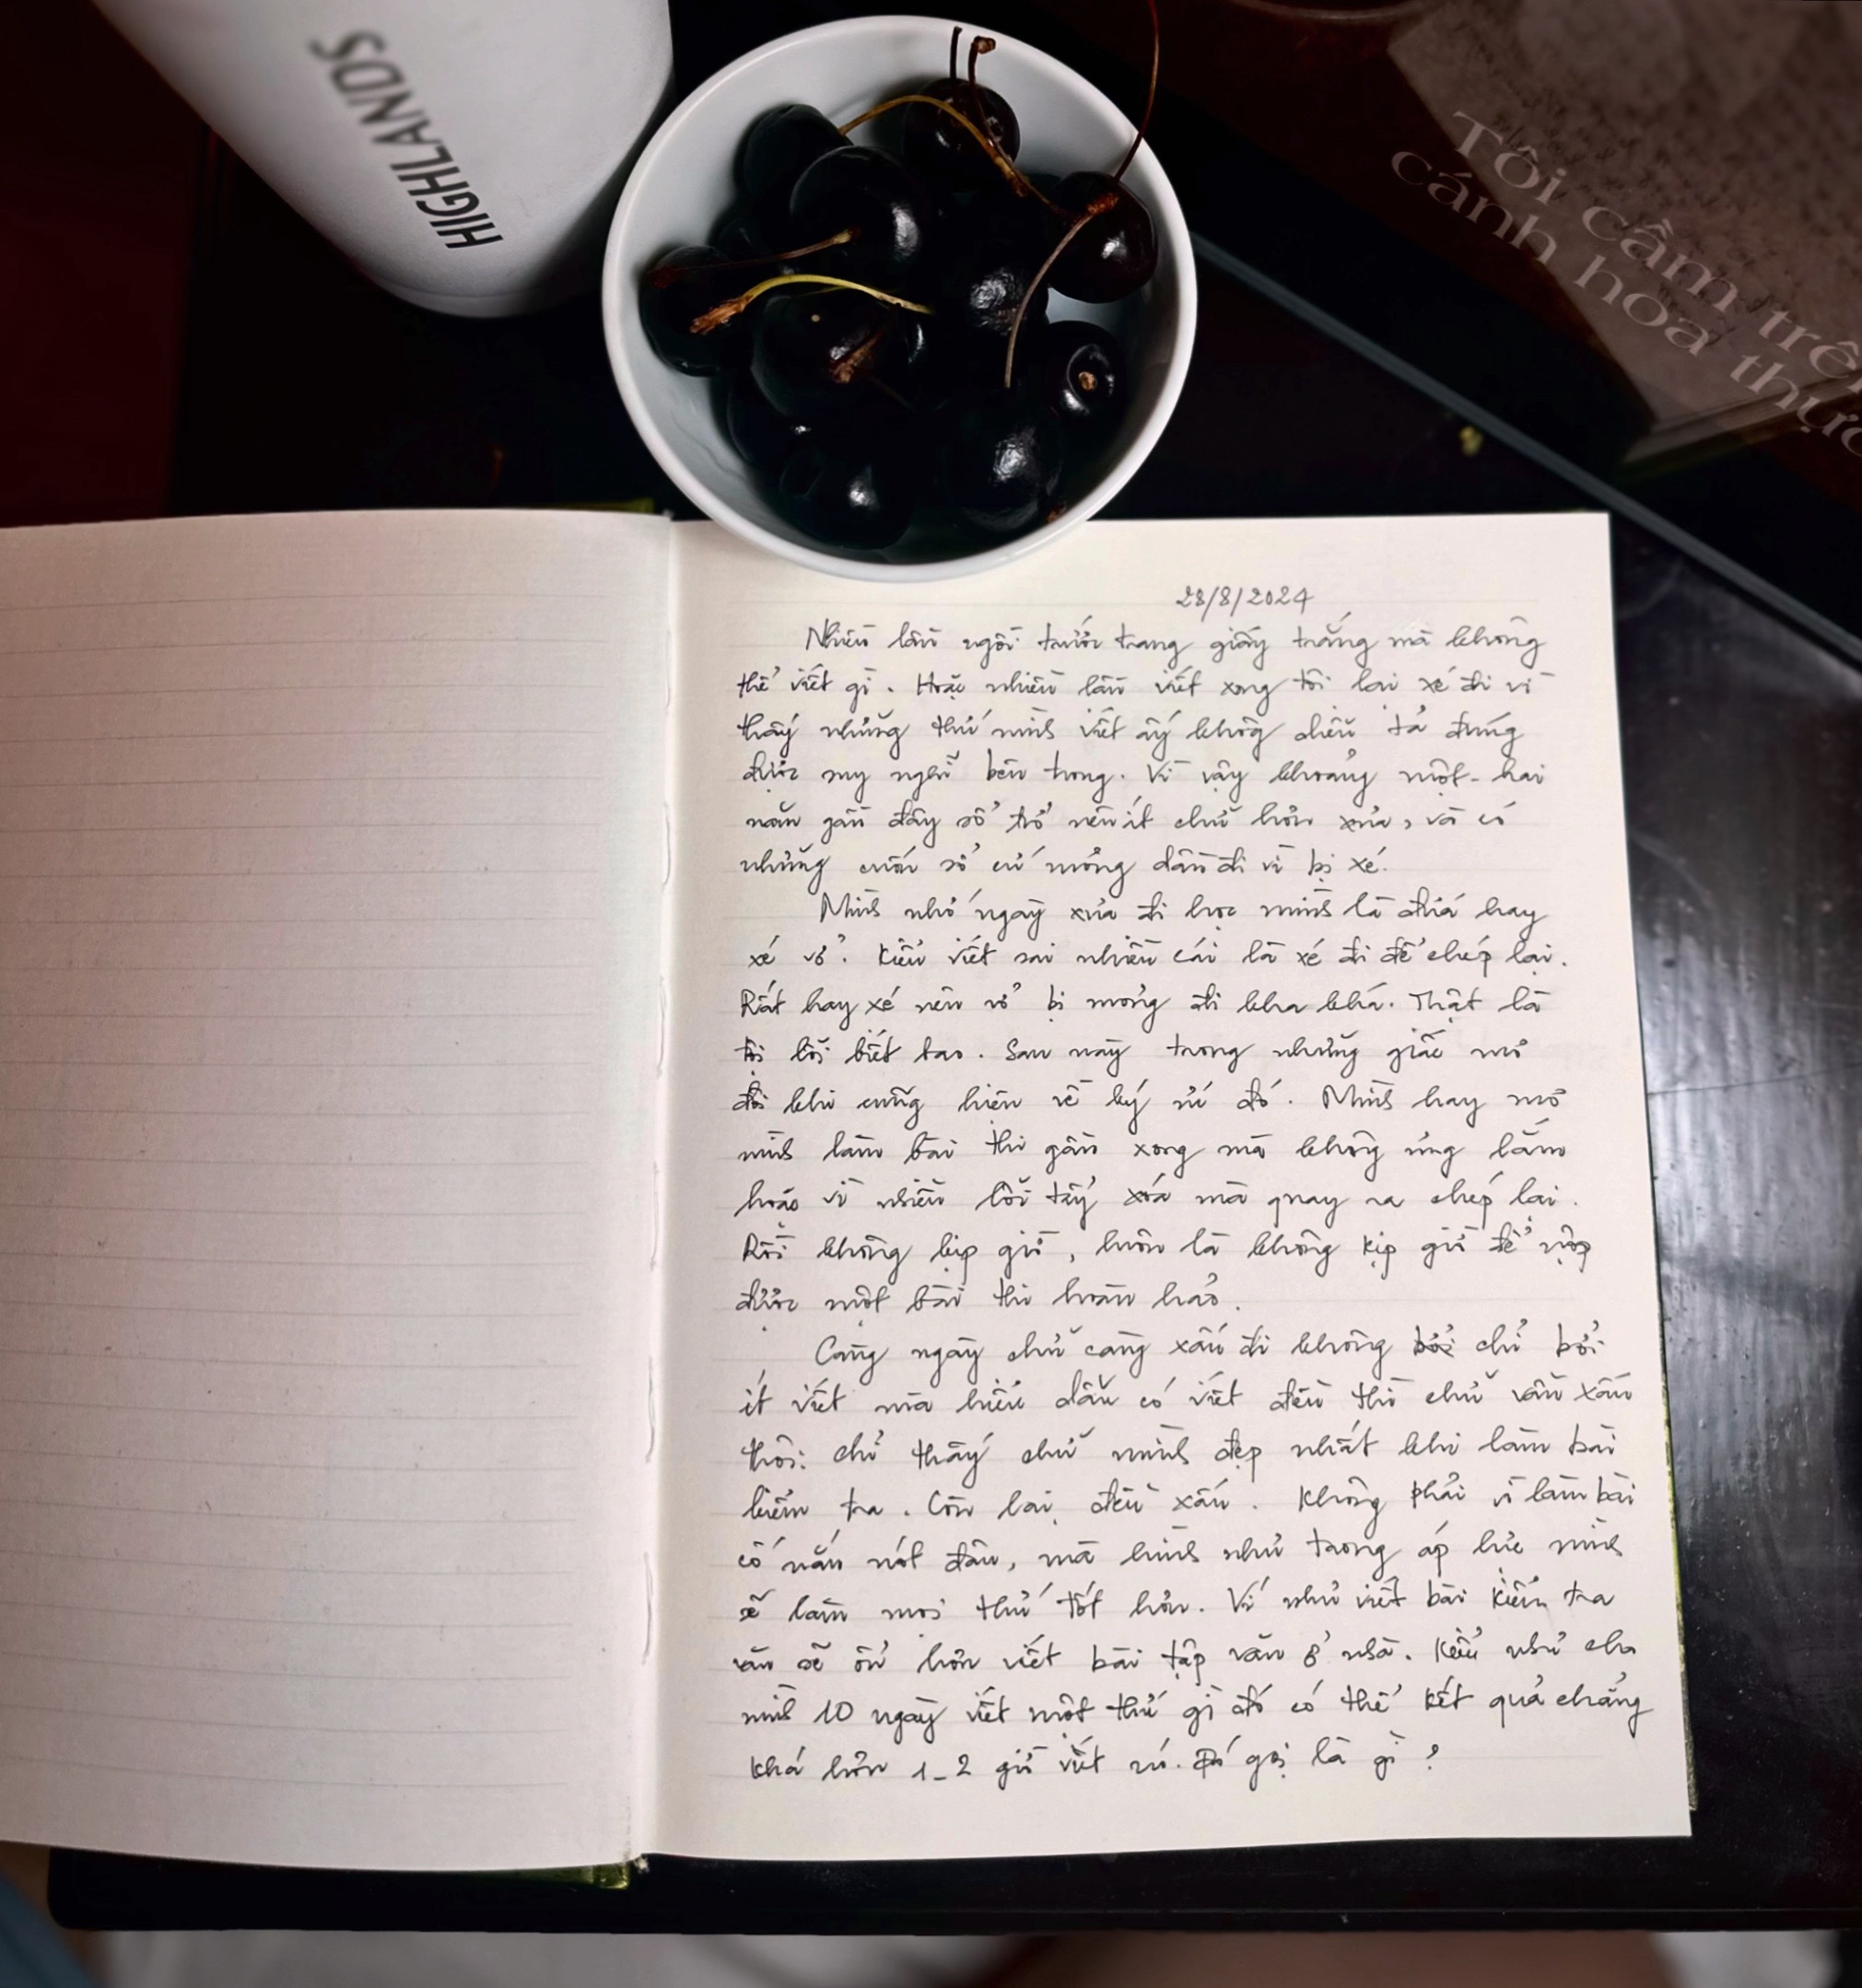 HIGHLANDS
Tôi cầm trên
cánh hoa thực
28/8/2024
Nhiều lần ngồi trước trang giấy trắng mà không
thể viết gì. Hoặc nhiều lần viết xong tôi lại xé đi vì
thấy những thứ mình viết ấy không diễn tả đúng
được suy nghĩ bên trong. Vì vậy khoảng một - hai
năm gần đây sổ trở nên ít chữ hơn xưa, và có
những cuốn sổ cứ mỏng dần đi vì bị xé.
Mình nhớ ngày xưa đi học mình là đứa hay
xé vở. Kiểu viết sai nhiều cái là xé đi để chép lại.
Rất hay xé nên vở bị mỏng đi kha khá. Thật là
tội lỗi biết bao. Sau này trong những giấc mơ
đôi khi cũng hiện về ký ức đó. Mình hay mơ
mình làm bài thi gần xong mà không ưng lắm
hoặc vì nhiều lỗi tẩy xóa mà quay ra chép lại.
Rồi không kịp giờ, luôn là không kịp giờ để nộp
được một bài thi hoàn hảo.
Càng ngày chữ càng xấu đi không bởi chỉ bởi
ít viết mà hiểu dẫu có viết đều thì chữ vẫn xấu
thôi: chỉ thấy chữ mình đẹp nhất khi làm bài
kiểm tra. Còn lại đều xấu. Không phải vì làm bài
cố nắn nót đâu, mà hình như trong áp lực mình
sẽ làm mọi thứ tốt hơn. Ví như viết bài kiểm tra
văn sẽ ổn hơn viết bài tập văn ở nhà. Kiểu như cho
mình 10 ngày viết một thứ gì đó có thể kết quả chẳng
khá hơn 1-2 giờ viết nó. Đó gọi là gì?